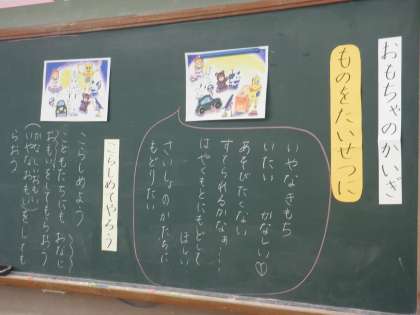 おもちゃのかいぎ
ものをたいせつに
いやなきもち
いたい　かなしい♡
あそびたくない
すてられるかなぁ…
はやくもとにもどして
ほしい
さいしょのかたちに
もどりたい
こらしめてやろう
こらしめよう
こどもたちにも おなじ
おもいをしてもらおう
いやなおもいをしても
らおう